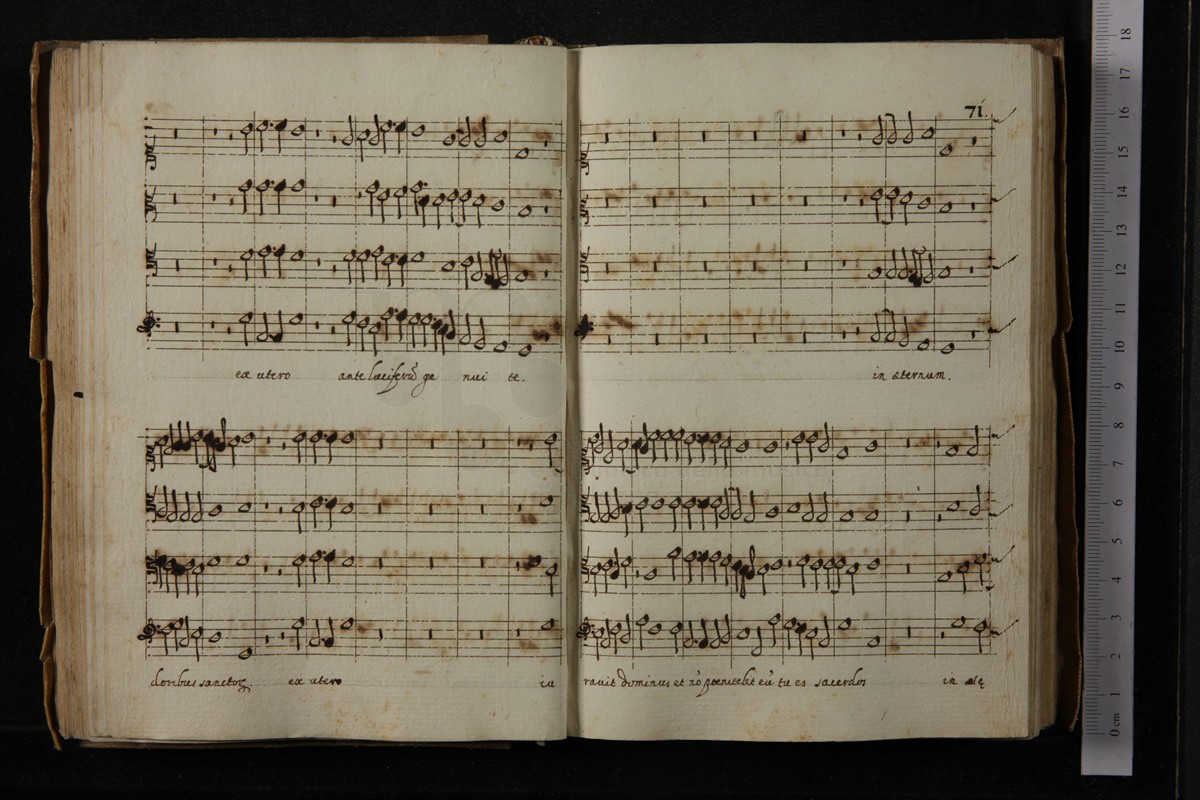 71.
ex utero ante luciferū ge nui te.
in æternum.
doribus sanctoꝝ. ex utero iu
rauit dominus et nō penitebit eū tu es sacerdos in æte
18
17
16
15
14
13
12
11
10
9
8
7
6
5
4
3
2
1
0 cm